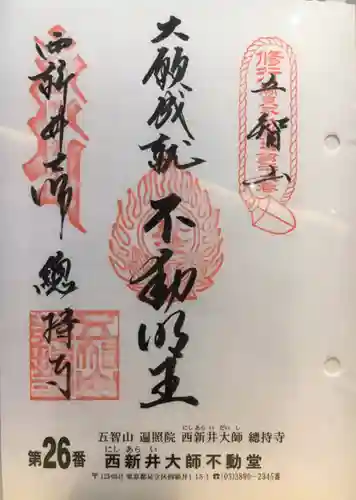 五智山
大願成就
不動明王
西新井大師
總持寺
五智山 遍照院 西新井大師 總持寺
にしあらい だいし
第26番 西新井大師不動堂
にし あら い
〒123-0841 東京都足立区西新井1-15-1 ☎(03)3890-2345番